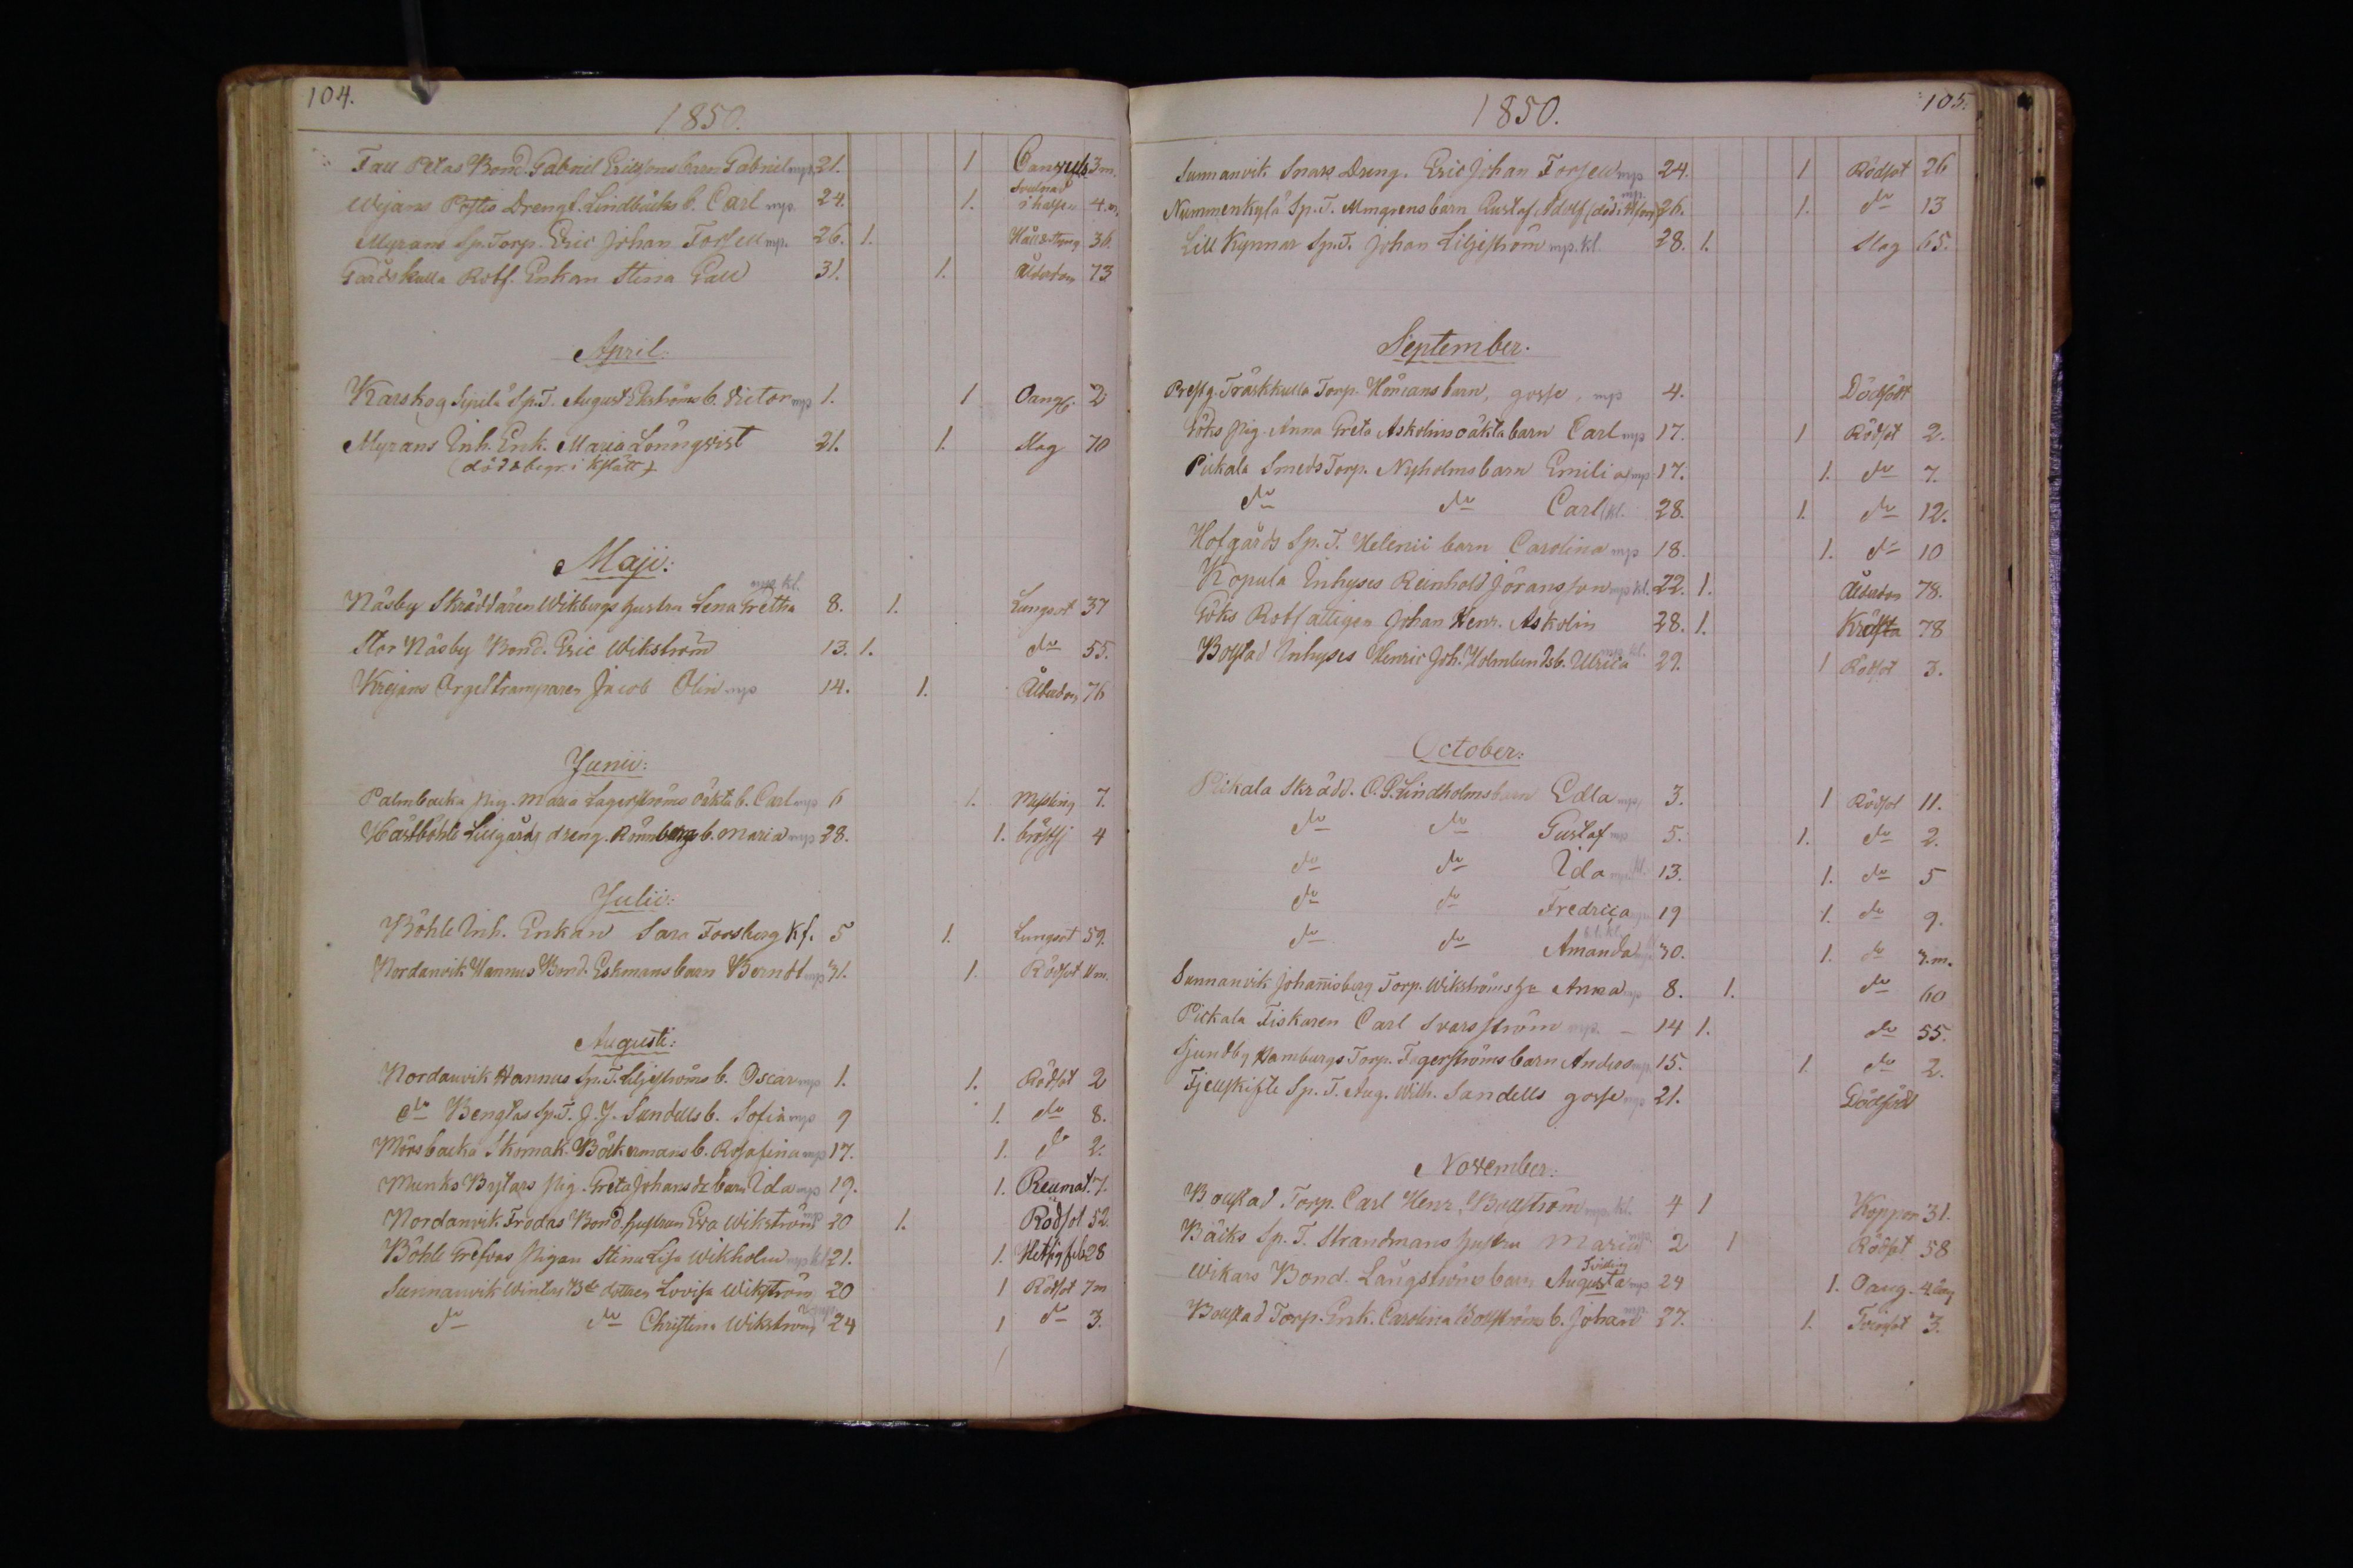 104.
1850.
Fall Petas Bond. Gabriel Ericssons barn Gabriel mp 21. 1 3m.
Wejans Drengs. Lindbäcks b. Carl mp. 24. 1. i halsen 4.m.
Myrans Sp. Torp. Eric Johan Forsell mp. 26. 1. Håll & Styng 36.
Gårdskulla Rotf. Enkan Stina Gall 31. 1. Ålderdom 73
April.
Karskog Sipilä Sp.T. August Ekströms b. Victor mp 1. 1 Oang. 2
Myrans Inh. Enk. Maria Lönnqvist 21. 1. Slag 70
(död & begr. i Kslätt)
Maji:
mp kl.
Näsby Skräddaren Wikbergs hustru Lena Gretha 8. 1. Lungsot 37
Stor Näsby Bond. Eric Wikström 13. 1. do 55.
Krejans Orgeltramparen Jacob Olin mp 14. 1. Ålderdom 76
Junii:
Palmbacka Pig. Maria Lagerströms oäkta b. Carl mp 6 1. Messling 7.
Hästböhle Lillgårds dreng. Rönnbergs b. Maria mp 28. 1. bröstsj 4
Julii:
Böhle Inh. Enkan Sara Forsberg kf. 5 1. Lungsot 59.
Nordanvik Hannus Bond. Eskmans barn Berndt mp 31. 1. Rödsot 11m.
Augusti:
Nordanvik Hannus Sp.T. Liljeströms b. Oscar mp 1. 1. Rödsot 2
do Bengtas Sp.T. J.J. Sundells b. Sofia mp 9 1. do 8.
Mörsbacka Skomak. Böckermans b. Rosafina mp 17. 1. do 2.
Munks Bytars Pig. Greta Johansdr barn Ida mp 19. 1. Reumat. 7.
Nordanvik Frodas Bond. hustrun Eva Wikström mp 20 1. Rödsot 52.
Böhle Grefvas Pigan Stina Lisa Wikholm mp kl 21. 1. Hetsig feb 28
Sunnanvik Winters Bde dotter Lovisa Wikström 20 1 Rödsot 7m
do do Christina Wikström 24 1 do 3.
105.
1850.
Sunnanvik Snars Dreng. Eric Johan Forsell mp 24. 1 Rödsot 26
Nummenkylä Sp.T. Almgrens barn Gustaf Adolf (död i Hfors) mp. 26. 1. do 13
Lill Kynnar Sp.T. Johan Liljeström mp. kl. 28. 1. Slag 65.
September.
Prestg. Träskkulla Torp. Hömans barn, gosse, mp 4. Dödfödt
Göks Pig. Anna Greta Askolins oäkta barn Carl mp 17. 1 Rödsot 2.
Pickala Smeds Torp. Nyholms barn Emilia mp 17. 1. do 7.
do do Carl kl. 28. 1. do 12.
Hofgårds Sp.T. Helenii barn Carolina mp 18. 1. do 10
Kopula Inhyses Reinhold Jöransson mp kl. 22. 1. Ålderdom 78.
Göks Rotfattigen Johan Henr. Askolin 28. 1. Kräfta 78
Bolstad Inhyses Henric Joh. Holmlunds b. Ulrica mp kl. 29. 1 Rödsot 3.
October:
Pickala Skrädd. C.G. Lindholms barn Edla mp 3. 1 Rödsot 11.
do do Gustaf mp 5. 1. do 2.
do do Ida mp. kl. 13. 1. do 5
do do Fredrica 19 1. do 9.
do do Amanda 30. 1. do 3.m.
Sunnanvik Johannisberg Torp. Wikströms hu Anna mp 8. 1. do 60
Pickala Fiskaren Carl Svarsström mp. – 14 1. do 55.
Sjundby Hamburgs Torp. Fagerströms barn Anders mp 15. 1. do 2.
Fjellskifte Sp.T. Aug. Wilh. Sandells gosse mp 21. Dödföd
November:
Bolstad Torp. Carl Henr. Bollström mp kl. 4 1 Koppor 31.
Bäcks Sp.T. Strandmans hustru Maria mp 2 1 Rödsot 58
Wikars Bond. Långströms barn Augusta mp 24 1. Oang. 4 dag
Bolstad Torp. Enk. Carolina Bollströms b. Johan mp. 27. 1. 3.